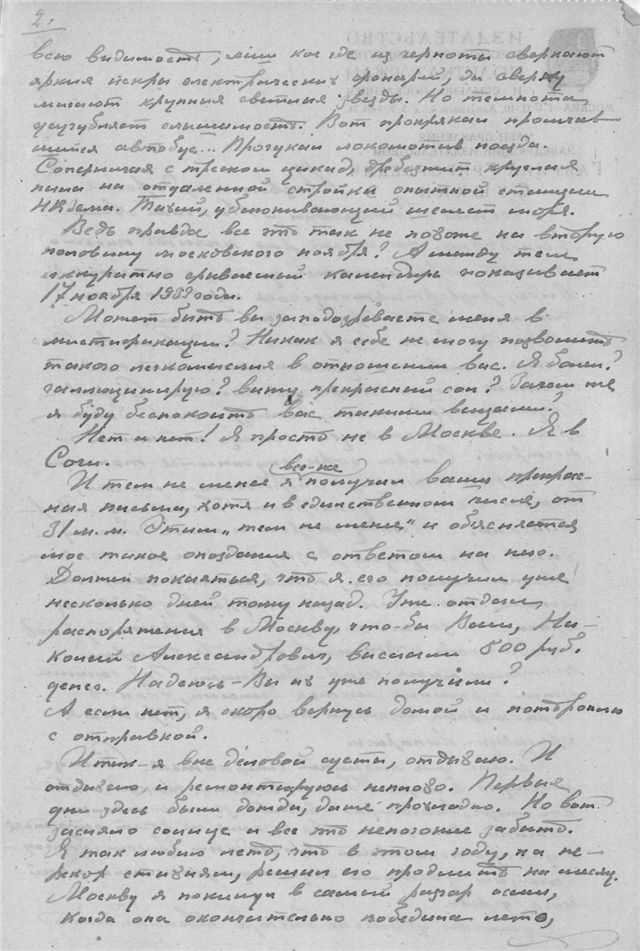 2.
всю видимость, лиш кое где из черноты сверкают
яркия искры електрических фонарей, да сверху
мигают крупныя светлыя звезды. Но темнота
усугубляет слышимость. Вот прокрякал промчав
шийся автобус... Прогукал локомотив поезда.
Соперничая с треском цикад, дребезжит круглая
пила на отдаленной стройке опытной станции
НКЗема. Тихий, убаюкивающий шелест моря.
Ведь правда все это так не похоже на вторую
половину московского ноября? А между тем
аккуратно срываемый календарь показывает
17 ноября 1939 года.
Может быть вы заподозреваете меня в
мистификации? Никак я себе не могу позволить
такого легкомыслия в отношении вас. Я болен?
галлюцинирую? вижу прекрасный сон? Зачем же
я буду беспокоить вас такими вещами?
Нет и нет! Я просто не в Москве. Я в
Сочи.
И тем не менее я все-же получил ваши прекрас-
ныя письма, хотя и в единственном числе, от
31 м.м. Этим „тем не менее" и объясняется
мое такое опоздание с ответом на него.
Должен покаяться, что я его получил уже
несколько дней тому назад. Уже отдал
распоряжения в Москву, что-бы Вам, Ни-
колай Александрович, выслали 800 руб.
денег. Надеюсь – Вы их уже получили?
А если нет, я скоро вернусь домой и потороплю
с отправкой.
Итак – я вне деловой суеты, отдыхаю. И
отдыхаю, и ремонтируюсь неплохо. Первые
дни здесь были дожди, даже прохладно. Но вот
засияло солнце и все это непогоние забыто.
Я так люблю лето, что в этом году, на пе-
рекор стихиям, решил его продлить на месяц.
Москву я покинул в самый разгар осени,
когда она окончательно победила лето,